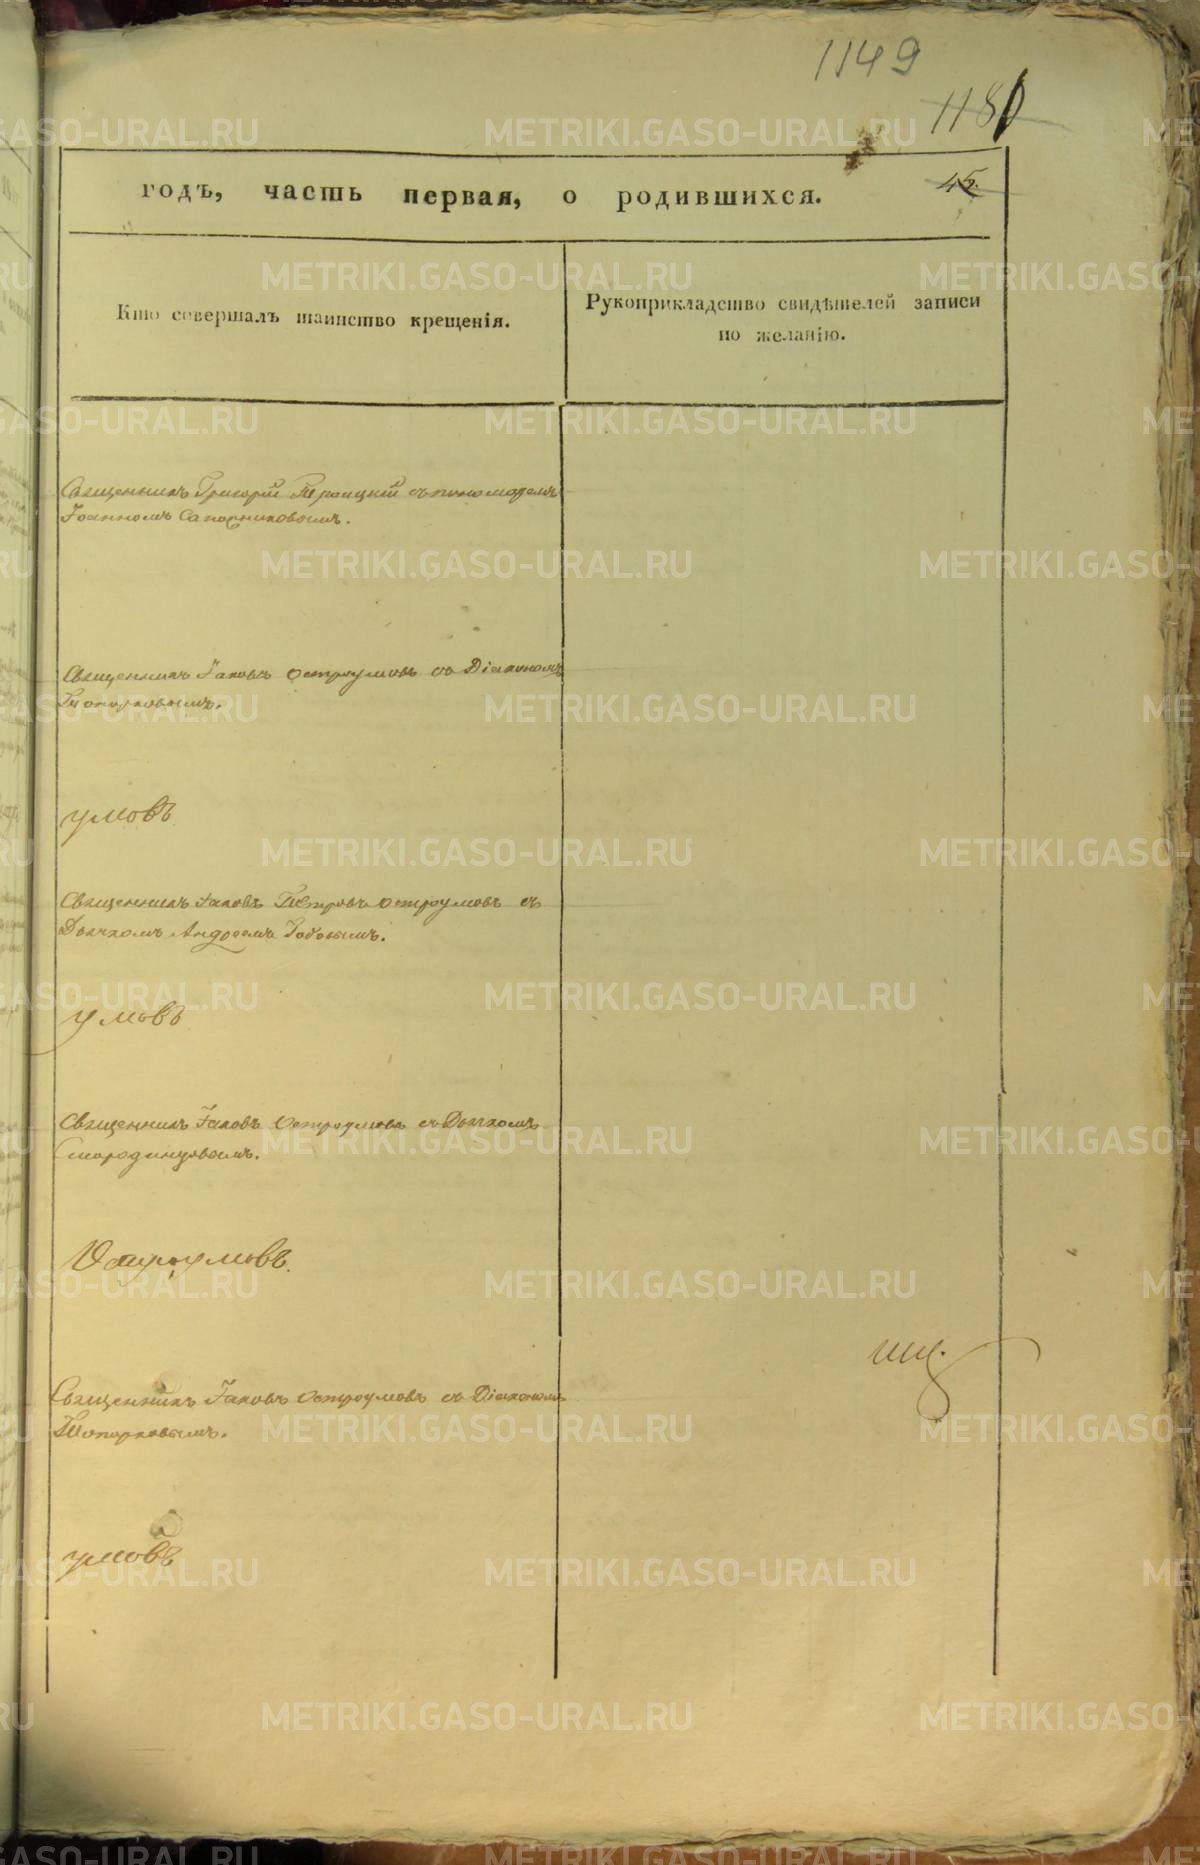 1149
1180
годъ, часть первая, о родившихся.
45.
Кто совершалъ таинство крещенія.
Рукоприкладство свидѣтелей записи
по желанію.
Священникъ Григорій Троицкій съ пономаремъ
Іоанномъ Сапожниковымъ.
Священникъ Іаковъ Остроумовъ съ Діакономъ
Топорковымъ.
умовъ
Священникъ Іаковъ Петровъ Остроумовъ съ
Дьячкомъ Андреемъ
умовъ
Священникъ Іаковъ Остроумовъ съ Дьячкомъ
Смородинцовымъ.
Остроумовъ.
Священникъ Іаковъ Остроумовъ съ Діакономъ
Топорковымъ.
умовъ
METRIKI.GASO-URAL.RU